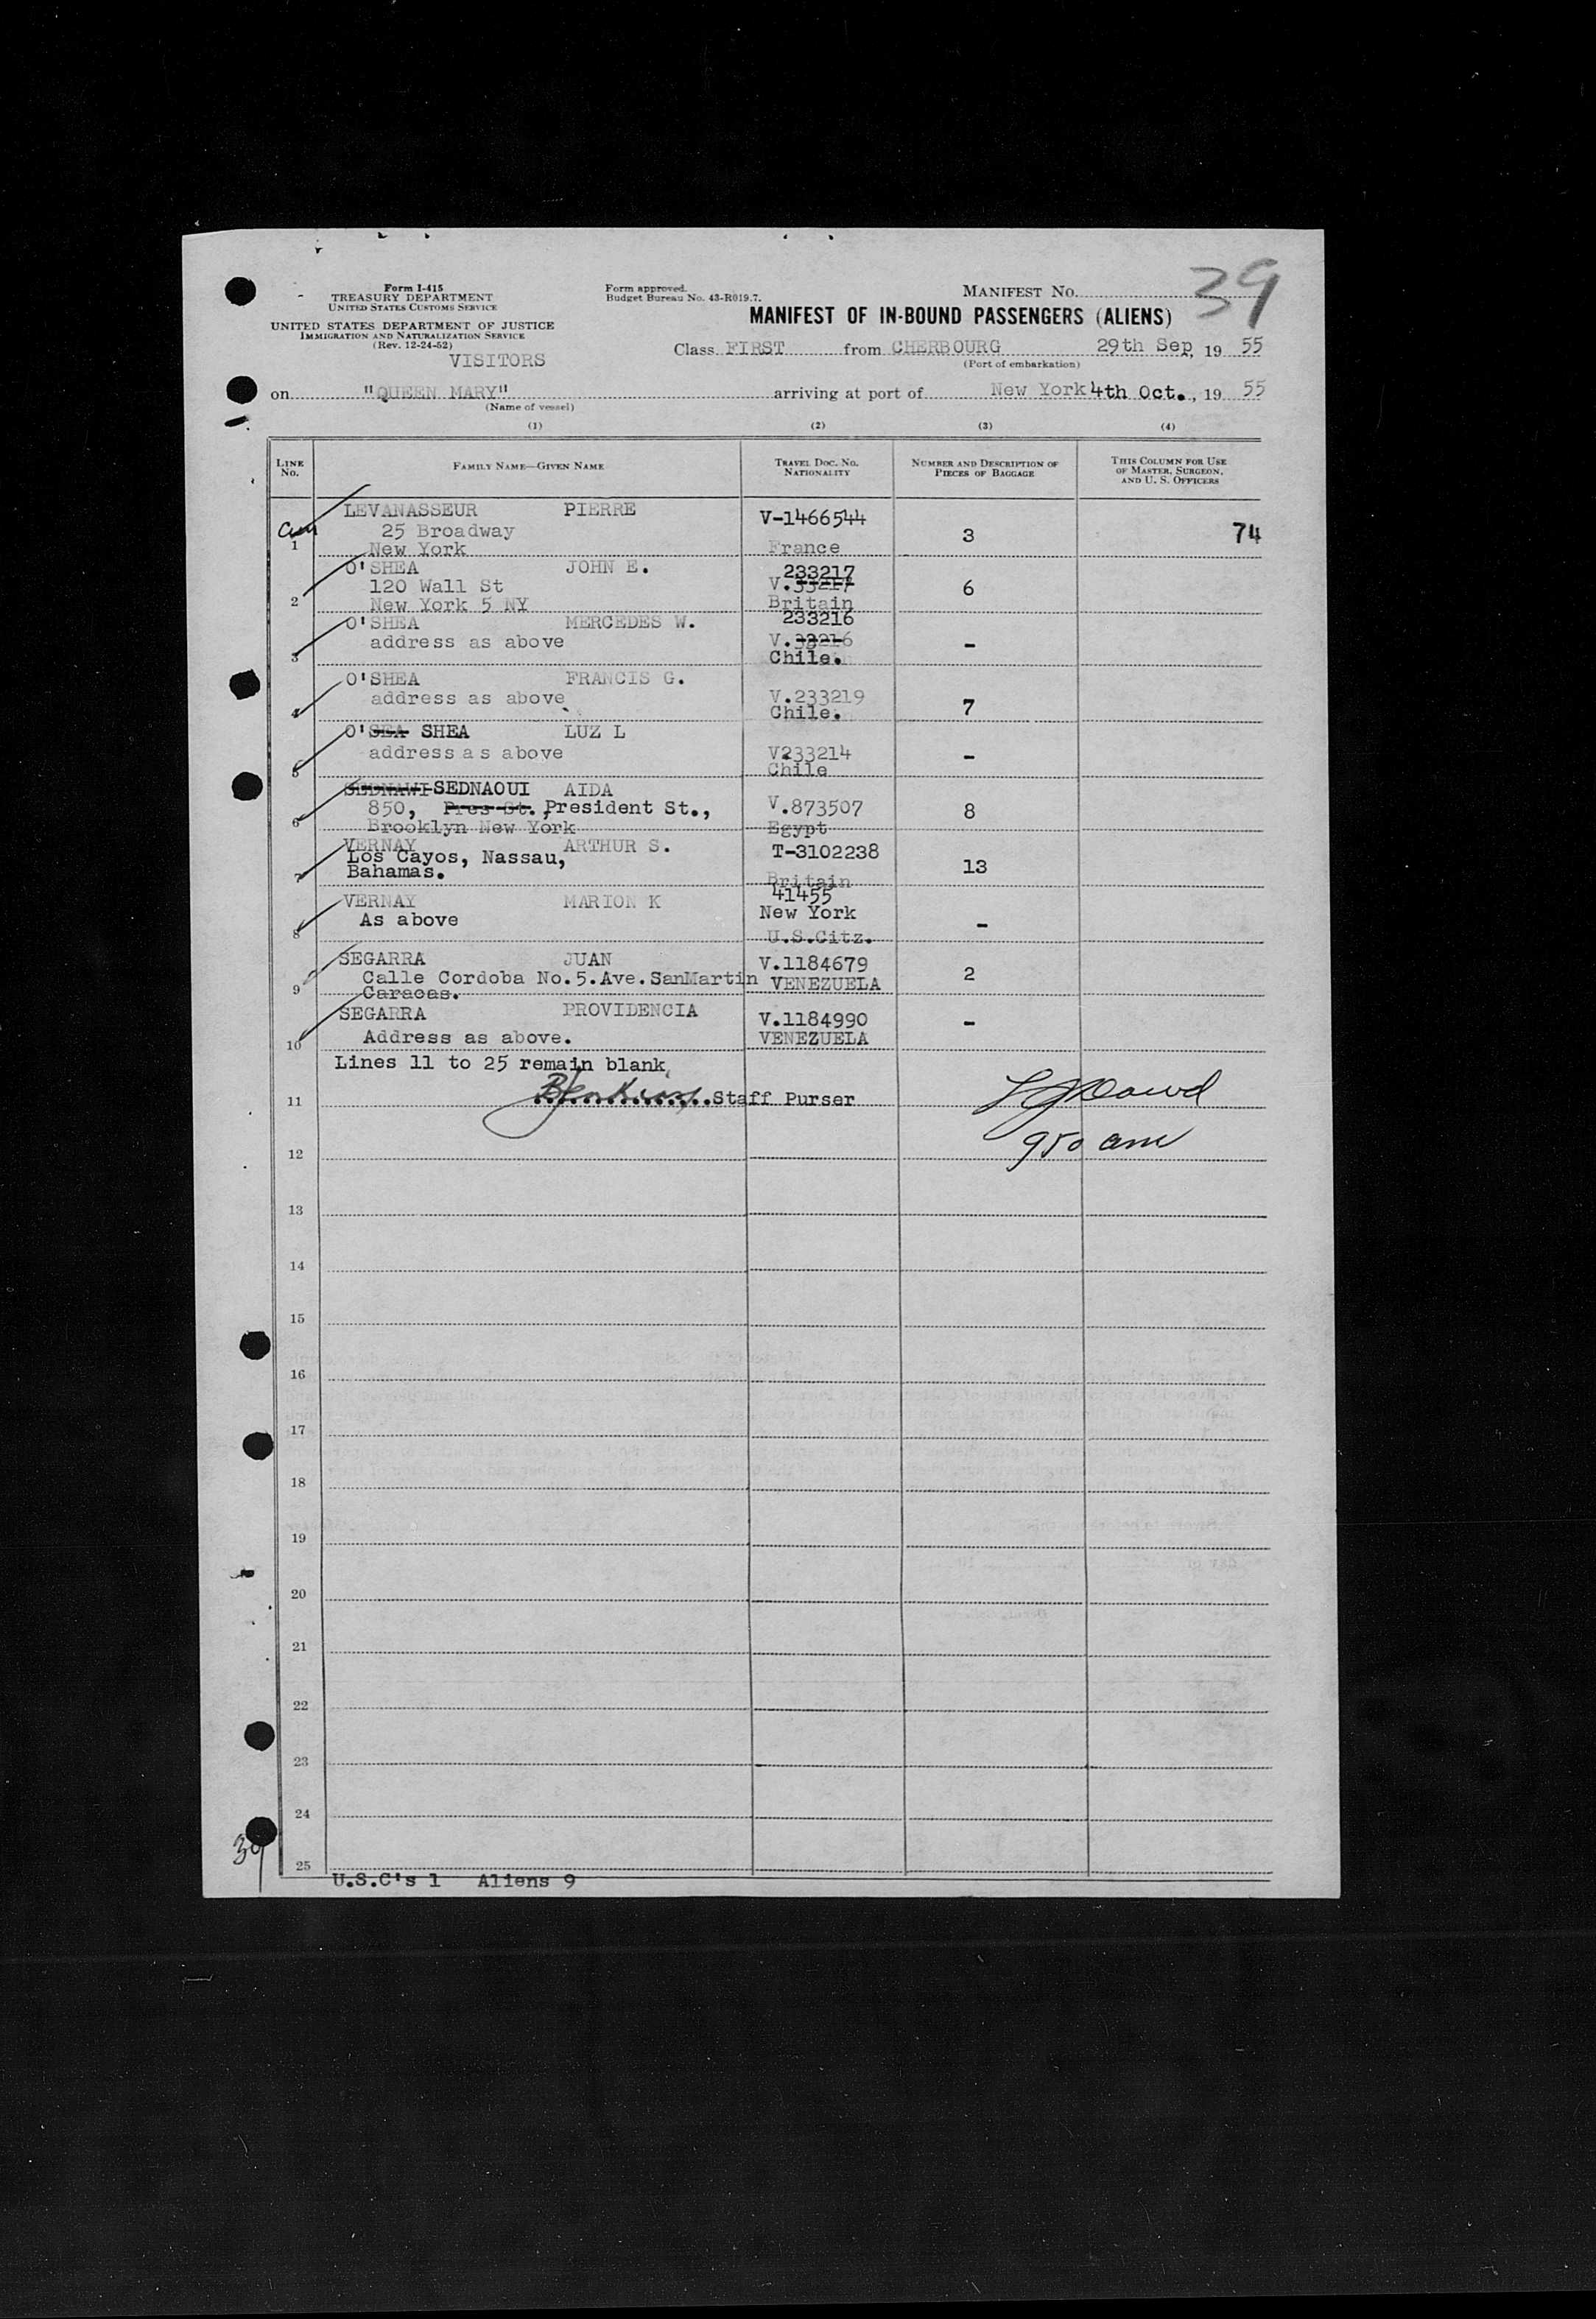 39
Form I-415
TREASURY DEPARTMENT
UNITED STATES CUSTOMS SERVICE
UNITED STATES DEPARTMENT OF JUSTICE
IMMIGRATION AND NATURALIZATION SERVICE
(Rev. 12-24-52)
VISITORS
Form approved.
Budget Bureau No. 43-R019.7.
MANIFEST No.
MANIFEST OF IN-BOUND PASSENGERS (ALIENS)
Class FIRST from CHERBOURG 29th Sep, 19 55
(Port of embarkation)
on "QUEEN MARY" arriving at port of New York 4th Oct., 19 55
(Name of vessel)
(1) (2) (3) (4)
LINE No. FAMILY NAME—GIVEN NAME TRAVEL DOC. NO. NATIONALITY NUMBER AND DESCRIPTION OF PIECES OF BAGGAGE THIS COLUMN FOR USE OF MASTER, SURGEON, AND U. S. OFFICERS
LEVANASSEUR PIERRE V-1466544
25 Broadway 3 74
1 New York France
O'SHEA JOHN E. 233217
120 Wall St V.33217 6
2 New York 5 NY Britain
O'SHEA MERCEDES W. 233216
address as above V.33216 -
3 Chile.
O'SHEA FRANCIS G.
address as above V.233219 7
4 Chile.
O'SEA SHEA LUZ L
address as above V233214 -
5 Chile
SEDNAWI SEDNAOUI AIDA
850, Pres St., President St., V.873507 8
6 Brooklyn New York Egypt
VERNAY ARTHUR S. T-3102238
Los Cayos, Nassau, 13
7 Bahamas. Britain
VERNAY MARION K 41455
As above New York -
8 U.S.Citz.
SEGARRA JUAN V.1184679 2
Calle Cordoba No.5.Ave.SanMartin VENEZUELA
9 Caracas.
SEGARRA PROVIDENCIA V.1184990 -
10 Address as above. VENEZUELA
Lines 11 to 25 remain blank
11 Staff Purser
950 am
12
13
14
15
16
17
18
19
20
21
22
23
24
39
25
U.S.C's 1 Aliens 9